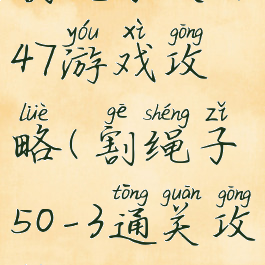 yóu xì gōng
47游戏攻
lüè gē shéng zǐ
略(割绳子
tōng guān gōng
50-3通关攻